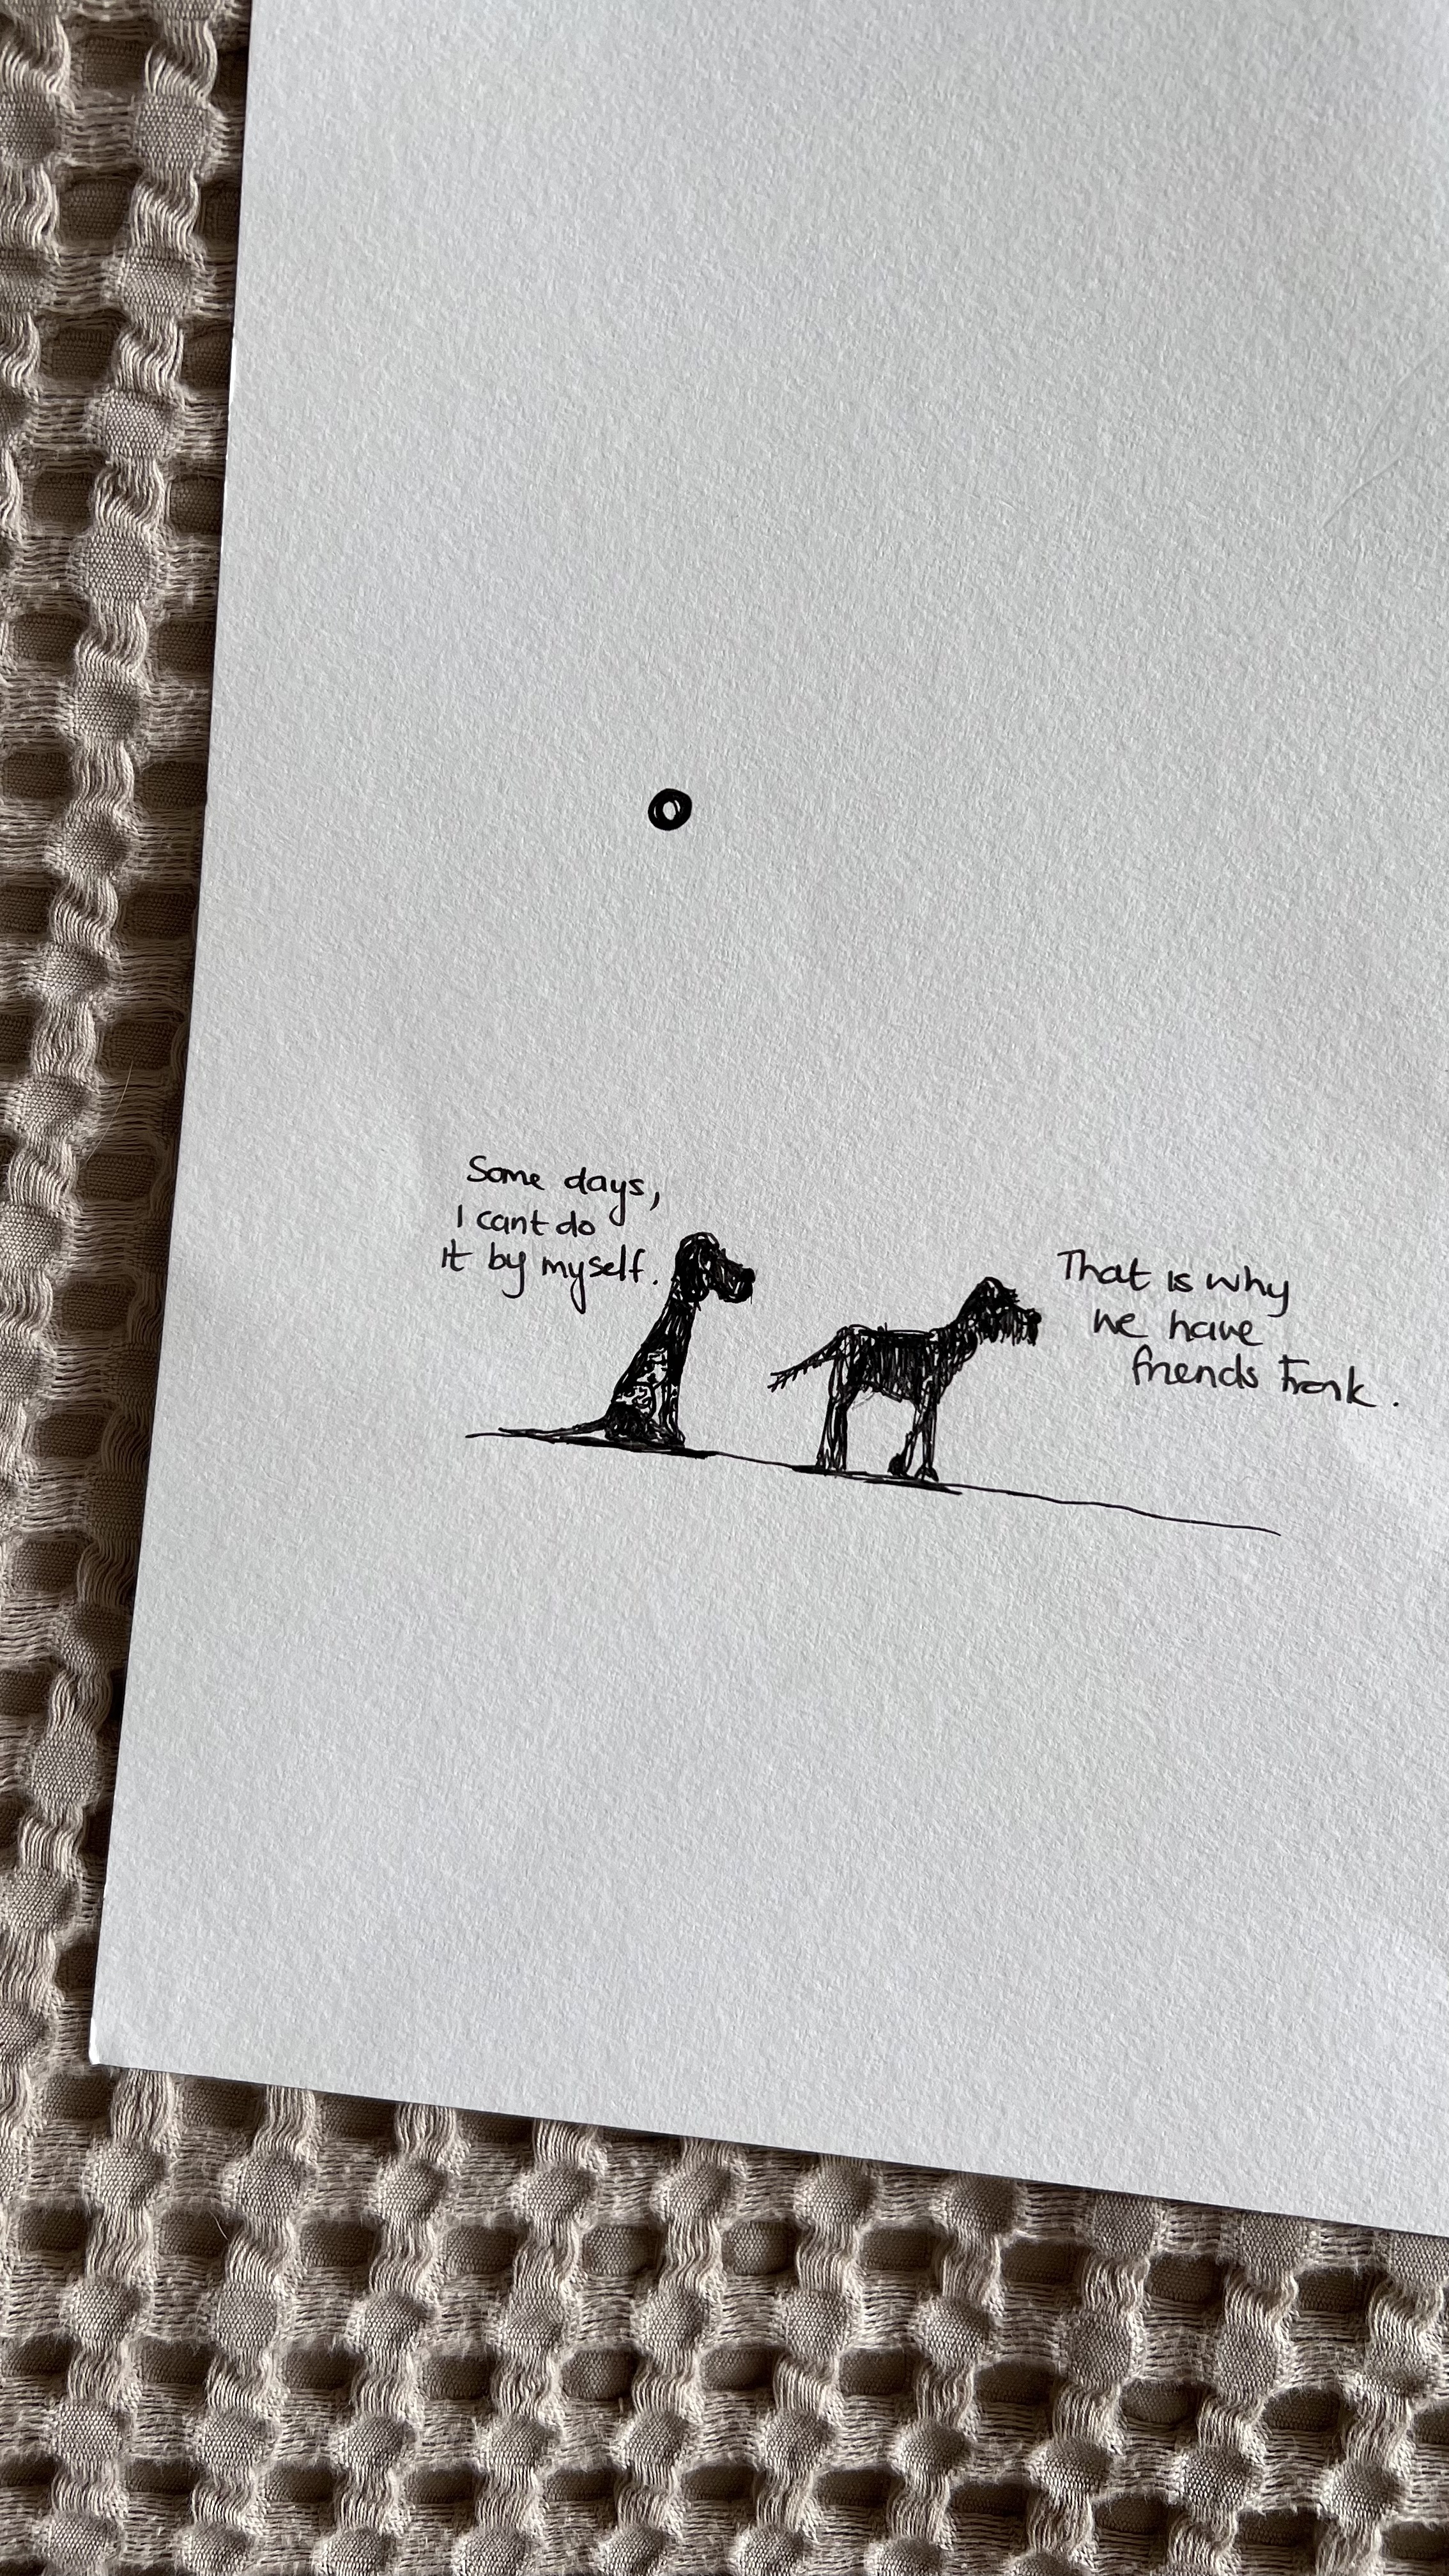 Some days,
I cant do
it by myself.
That is why
we have
friends Frank.